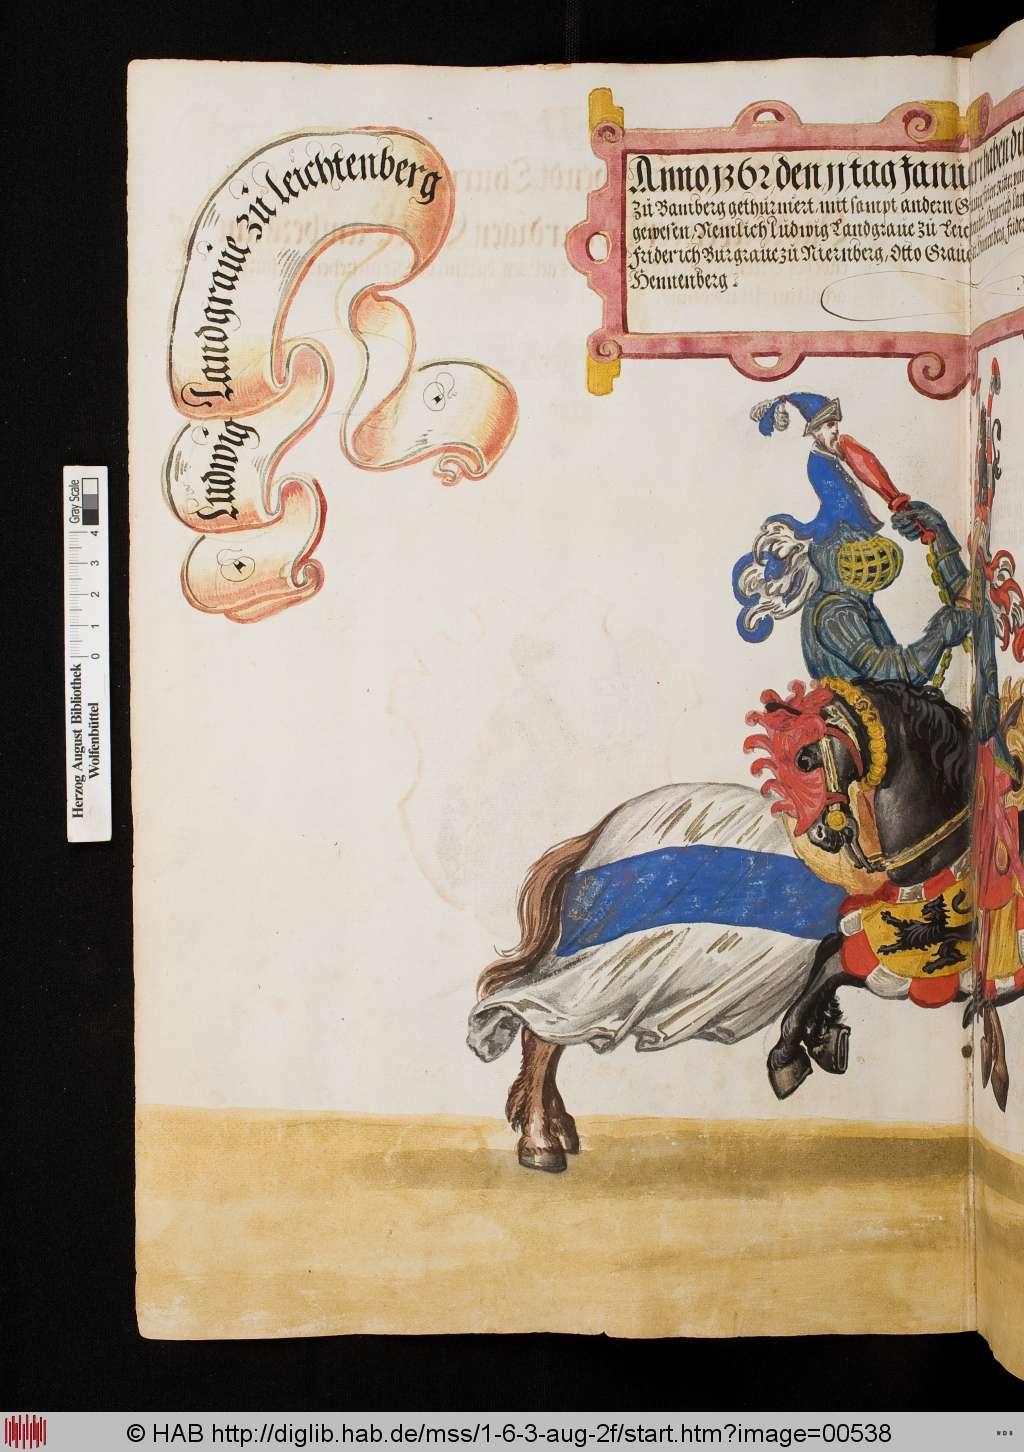 Ludwig Landgraue zu Leichtenberg
Anno 1362 den 11 tag Janu
zu Bamberg gethurniert mit sampt andern G
gewesen, Nemlich Ludwig Landgraue zu Leic
Friderich Burgraue zu Niernberg, Otto Graue
Hennenberg
haben
Gray Scale
0 1 2 3 4
Herzog August Bibliothek
Wolfenbüttel
© HAB http://diglib.hab.de/mss/1-6-3-aug-2f/start.htm?image=00538